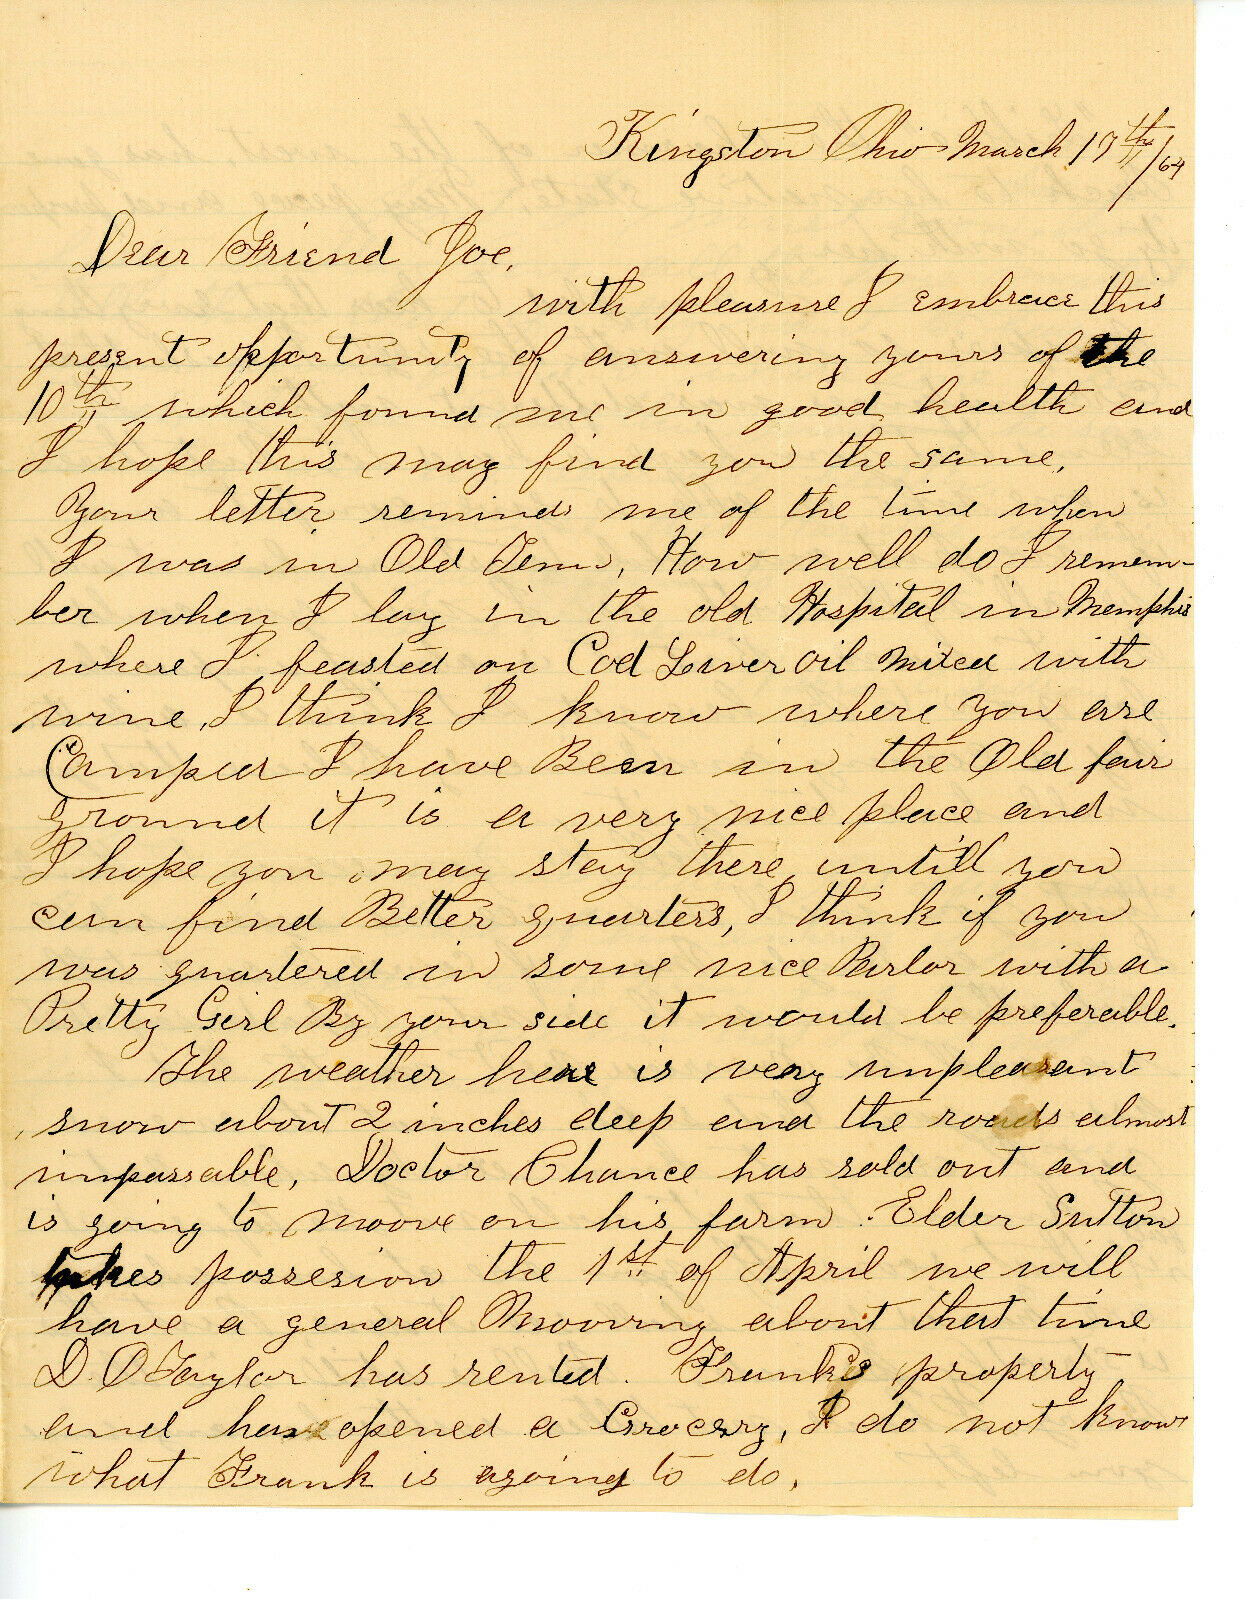 Kingston Ohio March 17th/64
Dear Friend Joe,
with pleasure I embrace this
present opportunity of answering yours of the
10th which found me in good health and
I hope this may find you the same,
Your letter reminds me of the time when
I was in Old Tenn, How well do I remem-
ber when I lay in the old Hospital in Memphis
where I feasted on Cod Liver oil Mixed with
wine, I think I know where you are
Camped I have Been in the Old fair
ground it is a very nice place and
I hope you may stay there untill you
can find Better quarters, I think if you
was quartered in some nice Parlor with a
Pretty Girl By your side it would be preferable.
The weather here is very unpleasant
snow about 2 inches deep and the roads almost
impassable, Doctor Chance has sold out and
is going to moove on his farm. Elder Sutton
takes possesion the 1st of April we will
have a general Mooving about that time
D. O Taylor has rented. Frank's property
and has opened a Grocery, I do not know
what Frank is agoing to do.